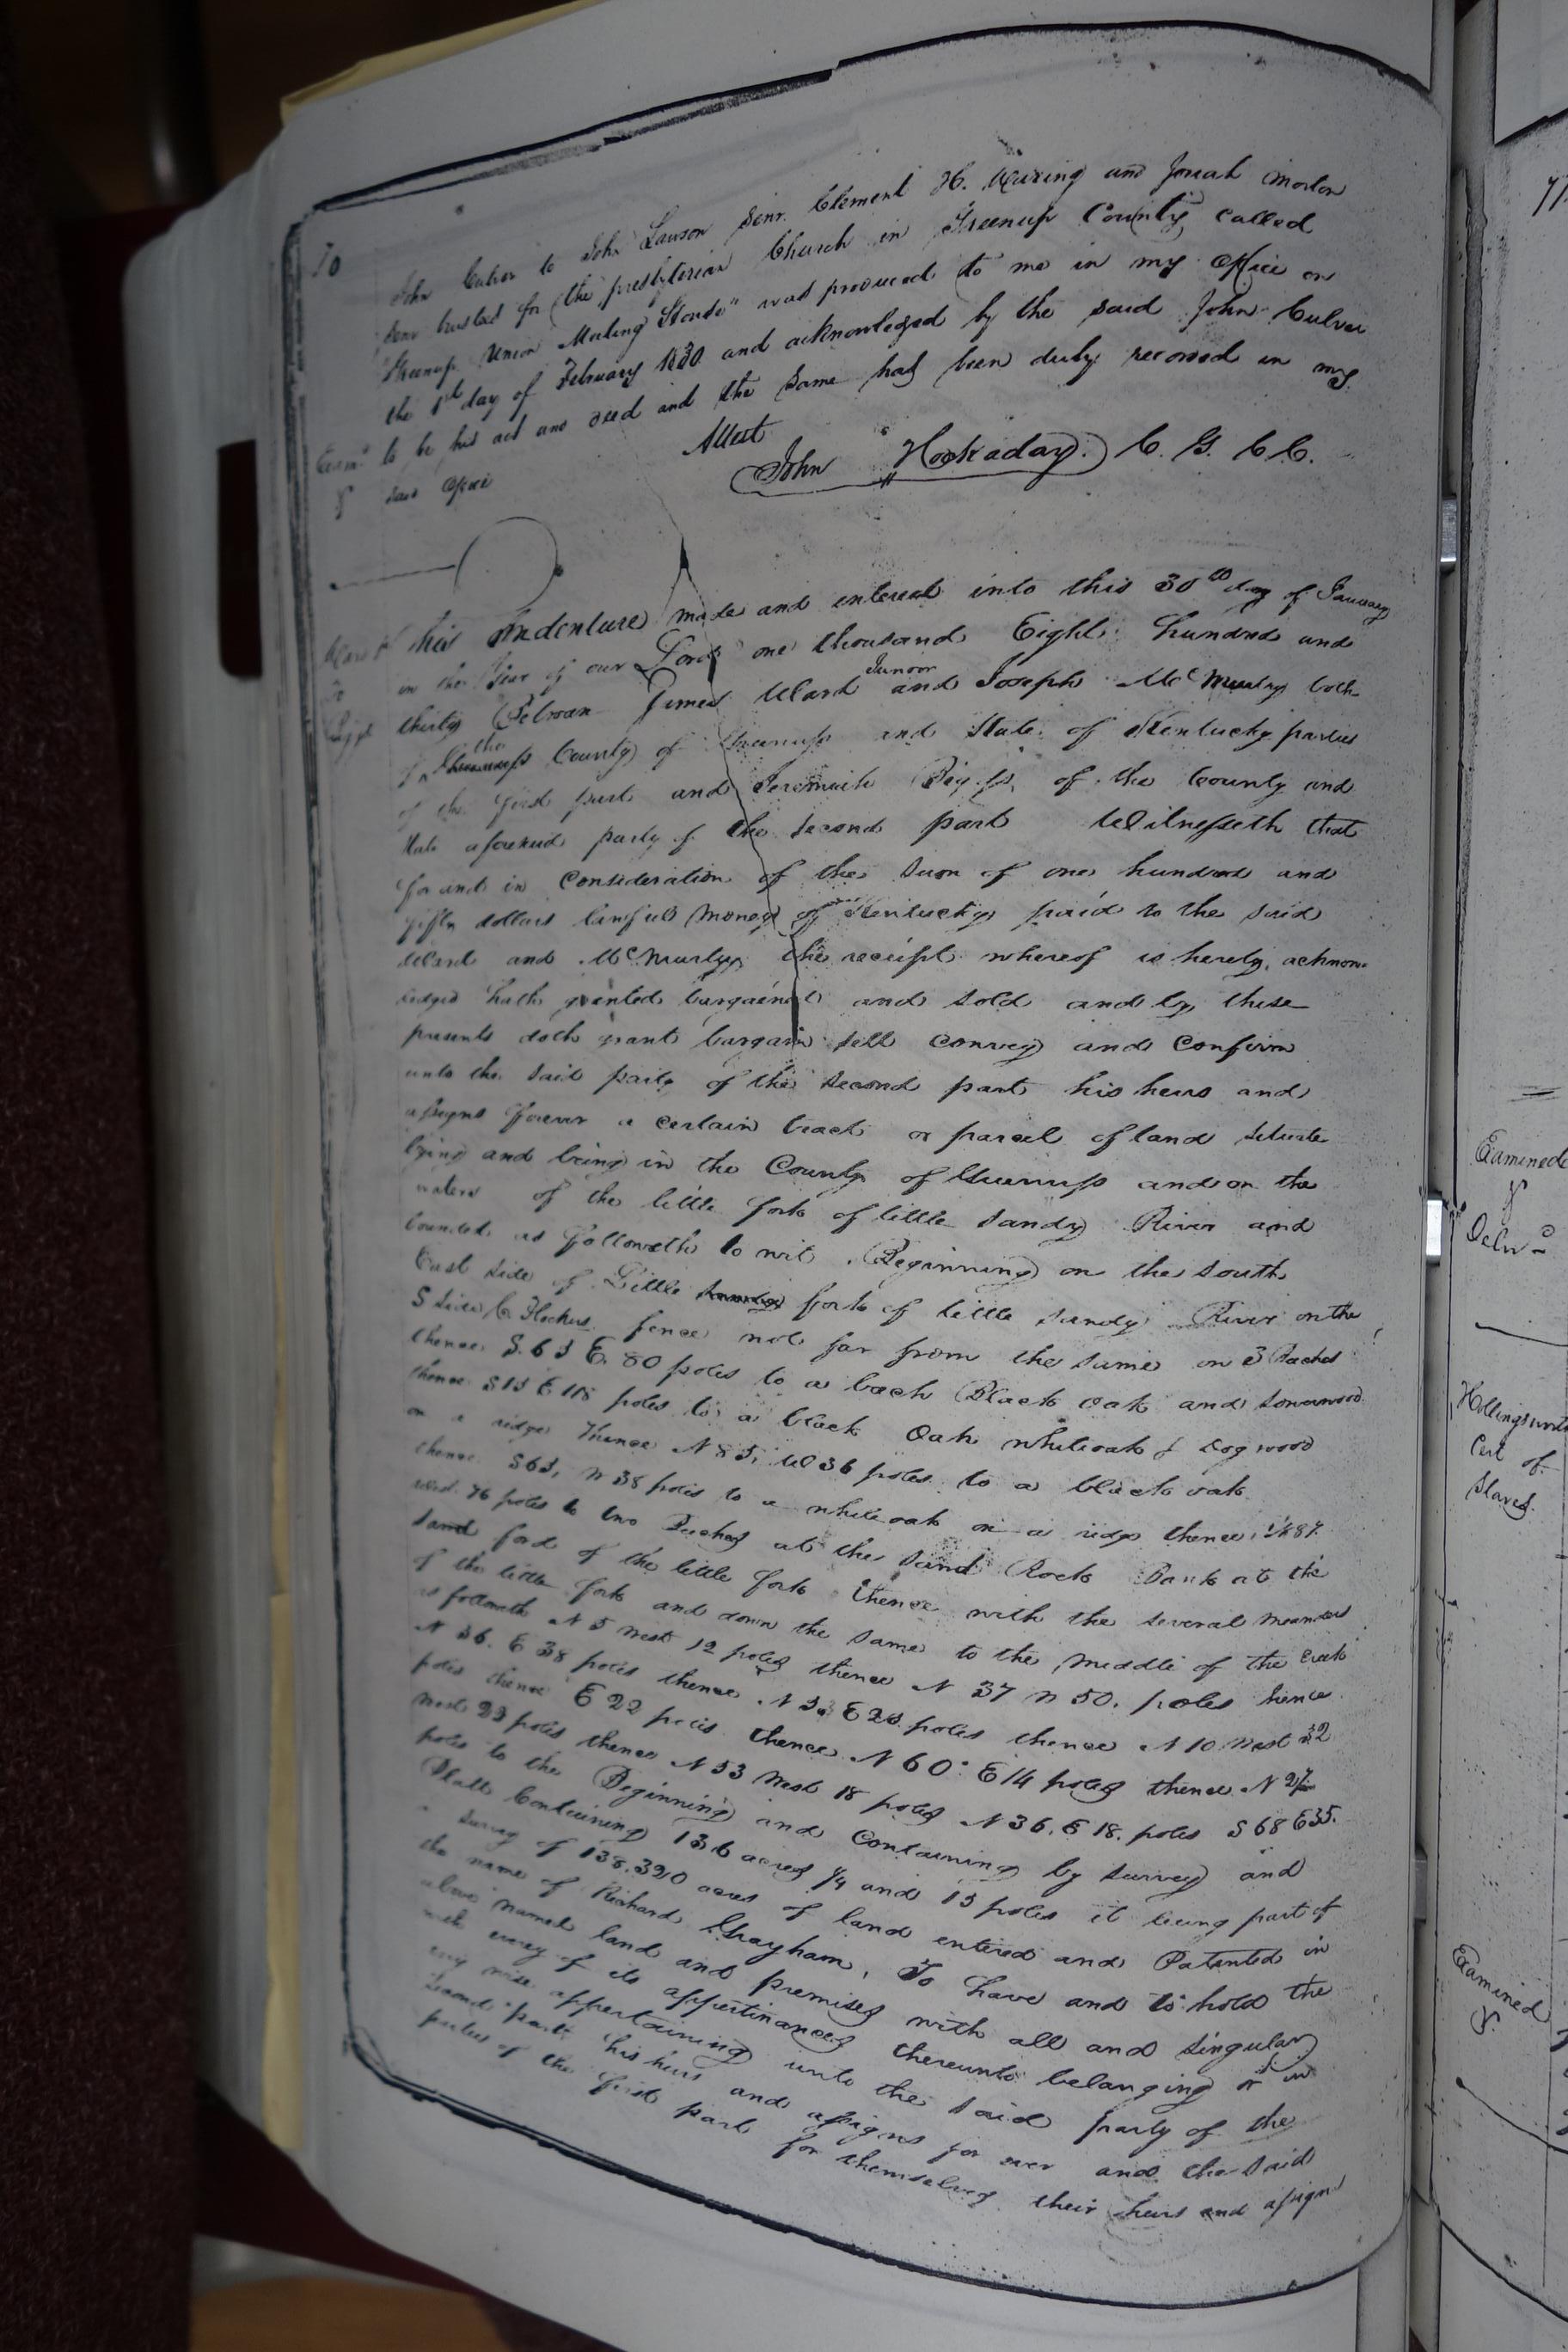 70
John Culver to John Lawson Senr. Clement H. Waring and Josiah Morton
Senr trusted for the presbyterian Church in Greenup County called
"Greenup Union Meeting House" was produced to me in my Office on
the 1st day of February 1830 and acknowledged by the said John Culver
to be his act and deed and the same has been duly recorded in my
said office
Attest
John Hockaday C. G. C. C.
This Indenture made and entered into this 30th day of January
in the Year of our Lord one thousand Eight hundred and
thirty Between James Ward Junoor and Joseph McMurtry both
of the County of Greenup and State of Kentucky parties
of the first part and Jeremiah of the County and
State aforesaid party of the second part Witnesseth that
for and in Consideration of the Sum of one hundred and
fifty dollars lawful Money of Kentucky paid to the said
Ward and McMurtry the receipt whereof is hereby acknow-
ledged hath granted bargained and sold and by these
presents doth grant bargain sell convey and confirm
unto the said party of the second part his heirs and
assigns forever a certain tract or parcel of land situate
lying and being in the County of Greenup and on the
waters of the little fork of little Sandy River and
bounded as followeth to wit. Beginning on the South
East side of Little fork of little Sandy River on the
S side fence not far from the same on 3 Beeches
thence S. 63 E. 80 poles to a beech Black oak and sourwood
thence S 15 E 118 poles to a black Oak whiteoak & Dogwood
on a ridge Thence N 85, W 36 poles to a black oak
thence S 63, W 38 poles to a white oak on a ridge thence N 87.
west 76 poles to two Beeches at the Sand Rock Bank at the
Sand ford of the little fork thence with the several meanders
of the little fork and down the same to the middle of the creek
as followeth N 5 west 12 poles thence N 37 W 50. poles hence
N 36. E 38 poles thence N E poles thence N 10 west 32
poles thence E 22 poles thence N 60 E 14 poles thence N 27
west 23 poles thence N 53 west 18 poles N 36. E 18. poles S 68 E 35.
poles to the Beginning and Containing by survey and
Platt Containing 136 acres 1/4 and 15 poles it being part of
a survey of 138.320 acres of land entered and Patented in
the name of Richard Grayham, To have and to hold the
above named land and premises with all and singular
with every of its appertinances thereunto belonging or in
any wise appertaining unto the said party of the
second part his heirs and assigns for ever and the said
parties of the first part for themselves their heirs and assigns
Examined
Hollingsworth
Cert of
Slaves.
Examined